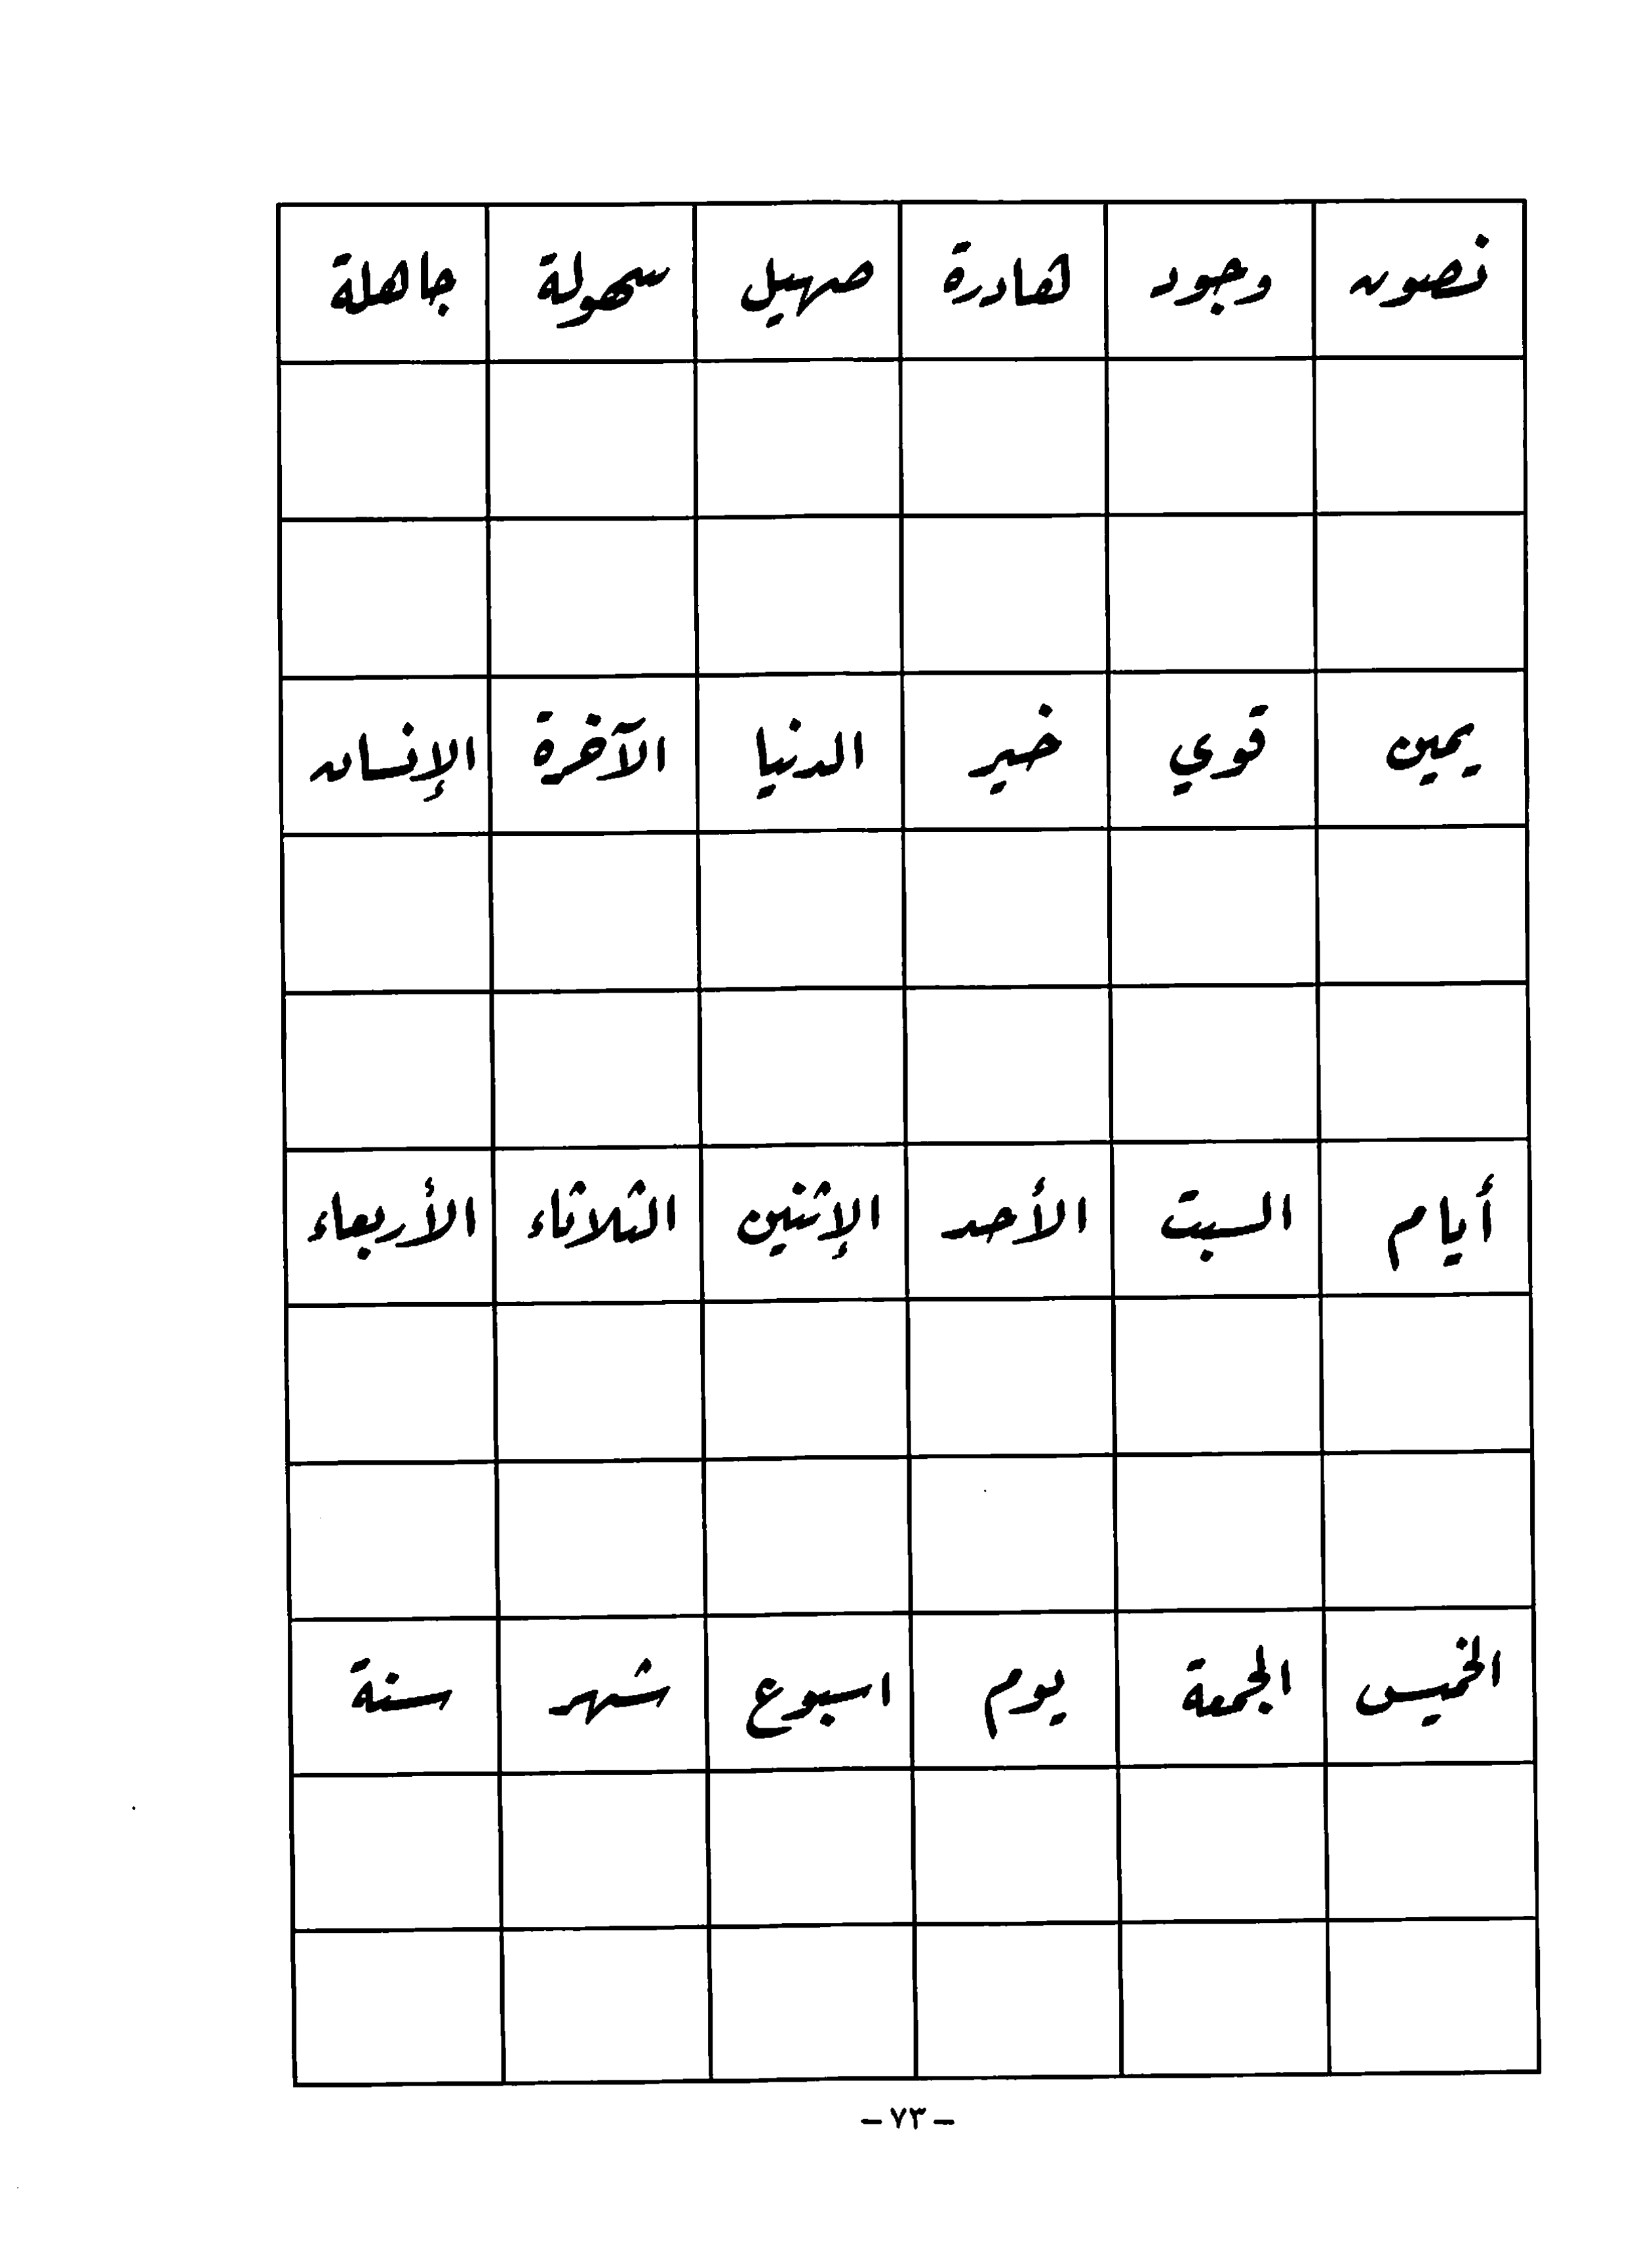 نصون وجود هادرة صهيل سهولة جاهلة
يمين قوي خير الدنيا الآخرة الإنسان
أيام السبت الأحد الإثنين الثلاثاء الأربعاء
الخميس الجمعة يوم اسبوع شهر سنة
- ٧٣ -